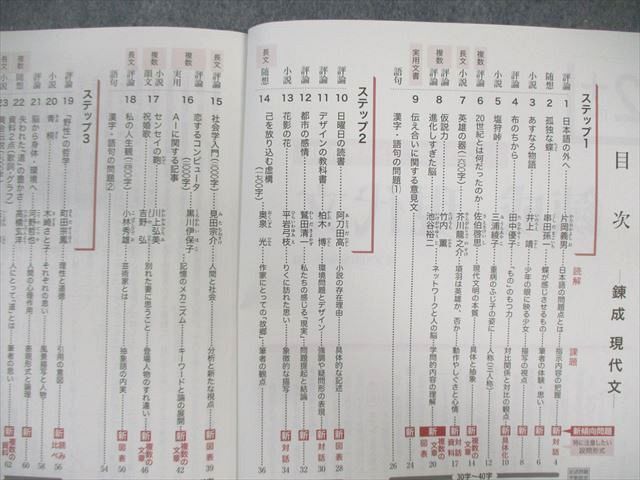 目次 ― 錬成 現代文 ―
読解 課題
新傾向問題
特に注意したい設問形式
ステップ1
評論 1 日本語の外へ 片岡義男 日本語の問題点とは 指示内容の把握 4
随想 2 孤独な蝶 串田孫一 蝶が感じさせるもの 筆者の体験・思い 6
小説 3 あすなろ物語 井上靖 少年の眼に映る少女 描写の視点 8
評論 4 布のちから 田中優子 「もの」のもつ力 対比関係と対比の観点 10
小説 5 塩狩峠 三浦綾子 重病のふじ子の姿に 人称(三人称) 12
評論 6 20世紀とは何だったのか 佐伯啓思 現代文明の本質 具体と抽象 14
小説 7 英雄の器 芥川龍之介 項羽は英雄か、否か 動作やしぐさと心情
複数 評論 8 仮説力 竹内薫
進化しすぎた脳 池谷裕二 ネットワークと人の脳 学問的内容の理解 20
実用文書 9 伝え合いに関する意見文 24
語句 漢字・語句の問題① 26
30字~40字
ステップ2
評論 10 日曜日の読書 阿刀田高 小説の存在理由 具体的な記述 28
評論 11 デザインの教科書 柏木博 環境問題とデザイン 強調や疑問形の表現 30
評論 12 都市の感情 鷲田清一 私たちの感じる「現実」 問題提起と結論 32
小説 13 花影の花 平岩弓枝 りくに訪れた思い 象徴的な描写 34
長文 随想 14 己を取り込む虚構 奥泉光 作家にとっての「故郷」 筆者の観点 36
長文 評論 15 社会学入門 見田宗介 人間と社会 分析と新たな視点 39
複数 実用 16 恋するコンピュータ 黒川伊保子 記憶のメカニズム キーワードと論の展開 42
AIに関する記事
複数 小説 韻文 17 センセイの鞄 川上弘美 別れた妻に思うこと 登場人物のすれ違い 46
祝婚歌 吉野弘
長文 評論 18 私の人生観 小林秀雄 芸術家とは 抽象語の内実 50
語句 漢字・語句の問題② 54
ステップ3
評論 19 「野性」の哲学 町田宗鳳 理性と道徳 引用の意図 56
小説 20 青桐 木崎さと子 それぞれの思い 風景描写と人物 58
評論 21 脳から身体・環境へ 河野哲也 人間の心理作用 表現形式と論理 60
複数 随想 22 失われた「道」の豊かさ 高橋玄洋 人にとって「道」とは 筆者の思い 62